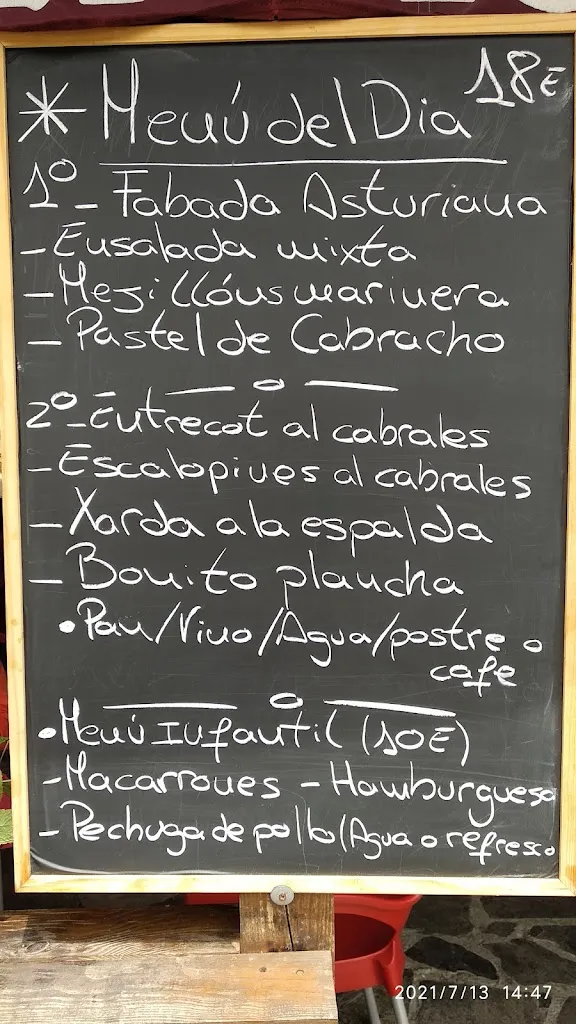 18E
* Menú del Dia
1º - Fabada Asturiana
- Ensalada mixta
- Mejillóns marinera
- Pastel de Cabracho
— o —
2º - Entrecot al cabrales
- Escalopines al cabrales
- Xarda a la espalda
- Bonito plancha
• Pan/Vino/Agua/postre o
cafe
— o —
• Menú Infantil (10E)
- Macarrones - Hamburguesa
- Pechuga de pollo (Agua o refresco
2021/7/13 14:47